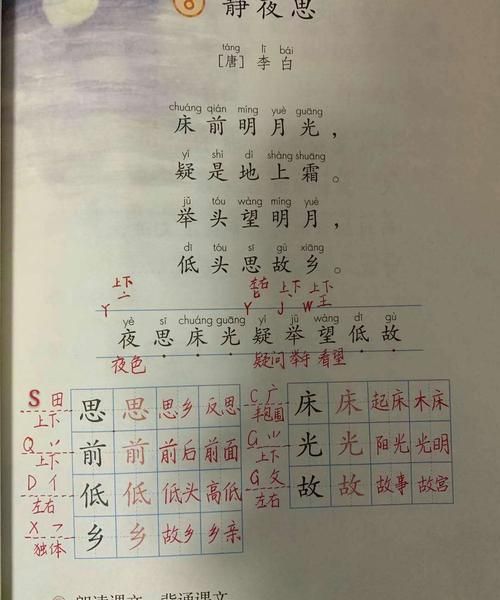 8 静夜思
táng lǐ bái
[唐] 李白
chuáng qián míng yuè guāng
床前明月光，
yí shì dì shàng shuāng
疑是地上霜。
jǔ tóu wàng míng yuè
举头望明月，
dī tóu sī gù xiāng
低头思故乡。
上下 左右 上下 上下
Y 亠 Y J W 王
yè sī chuáng guāng yí jǔ wàng dī gù
夜思床光疑举望低故
夜色 疑问 举手 看望
S 田 思 思 思乡 反思 C 广 床 床 起床 木床
上下 半包围
Q 丷 前 前 前后 前面 G ⺌ 光 光 阳光 光明
上下 上下
D 亻 低 低 低头 高低 G 攵 故 故 故事 故宫
左右 左右
X 乛 乡 乡 故乡 乡亲
独体
朗读课文。背诵课文。